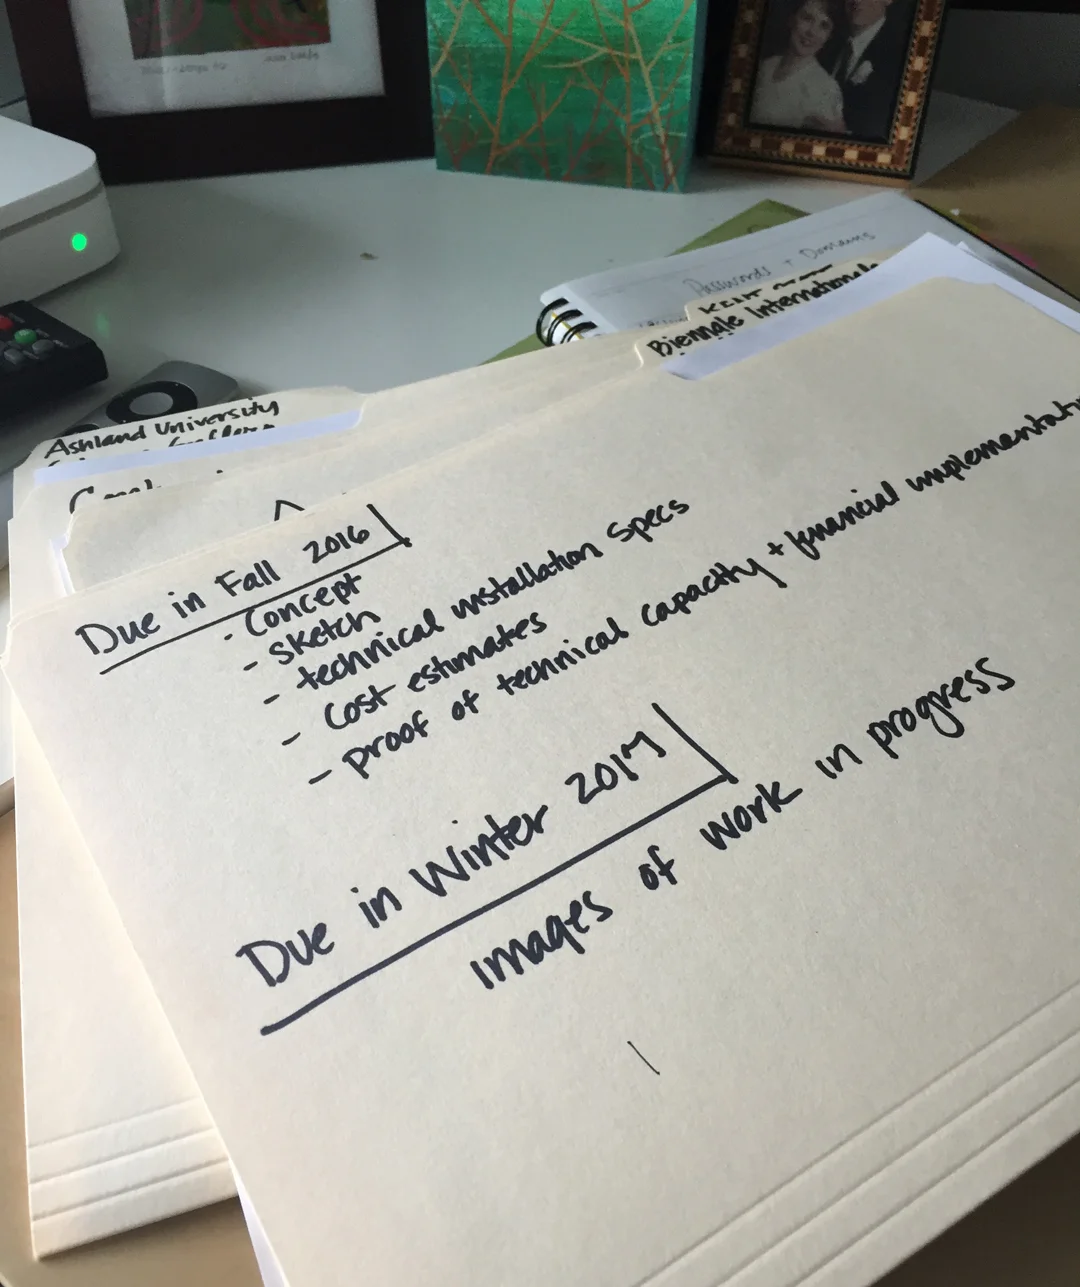 Passwords + Domains
Biennale Internationale
Ashland University
Due in Fall 2016
- Concept
- Sketch
- technical installation specs
- Cost estimates
- proof of technical capacity + financial implementati
Due in Winter 2017
images of work in progress